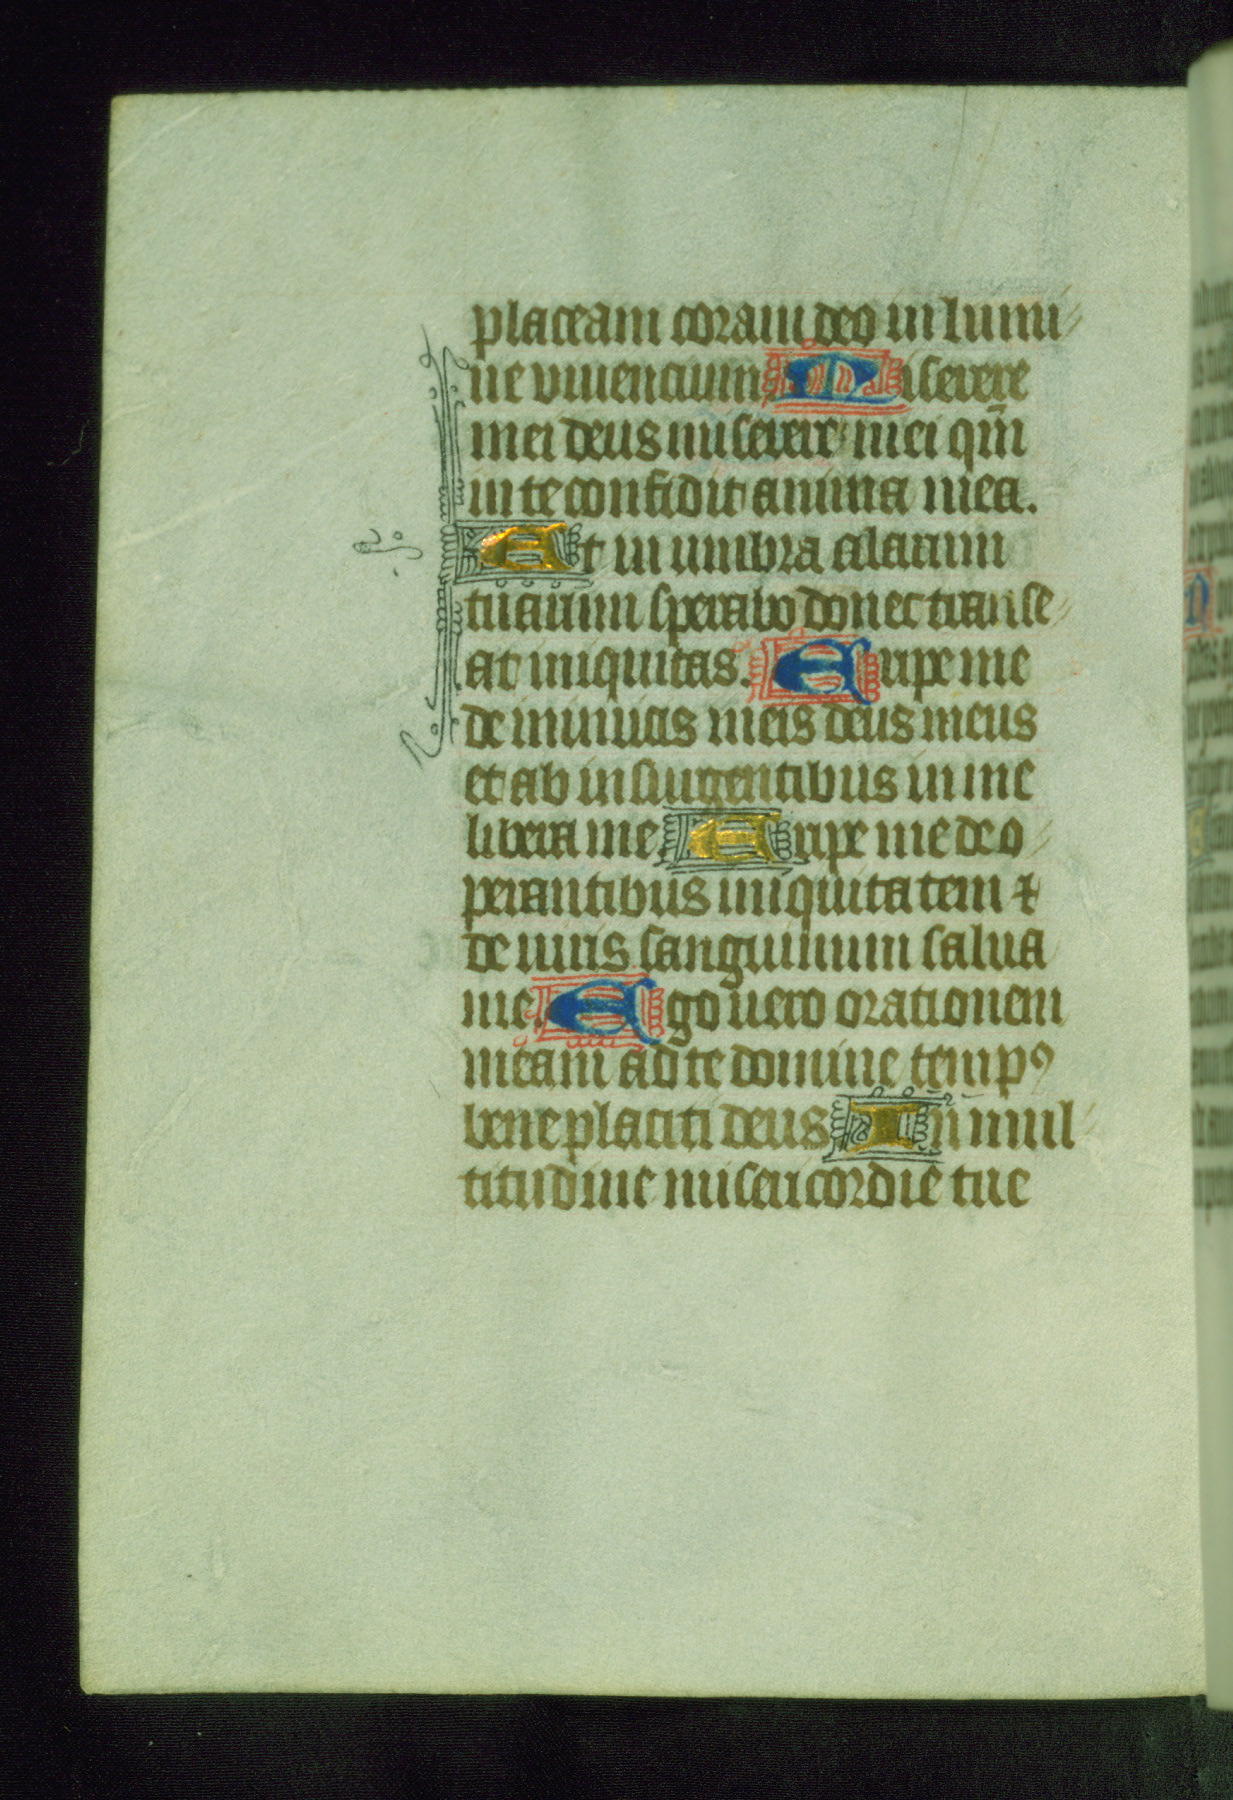 placeam coram deo in lumi
ne viuencium Miserere
mei deus miserere mei qm̄
in te confidit anima mea.
Et in umbra alarum
tuarum sperabo donec transe
at iniquitas. Eripe me
de inimicis meis deus meus
et ab insurgentibus in me
libera me. Eripe me de o
perantibus iniquitatem ⁊
de viris sanguinum salua
me. Ego uero orationem
meam ad te domine tempꝰ
beneplaciti deus In mul
titudine misericordie tue